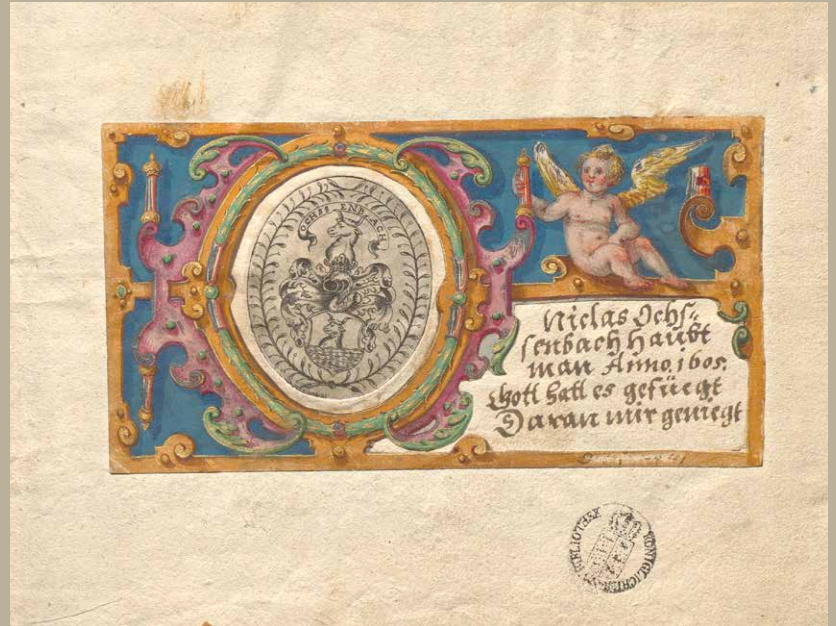 OCHSS ENBACH
Niclas Ochs⸗
senbach haubt
man Anno. 1605.
Gott hatt es gefüegt
Daran mir geniegt
KÖNIGLICHEN BIBLIOTHEK